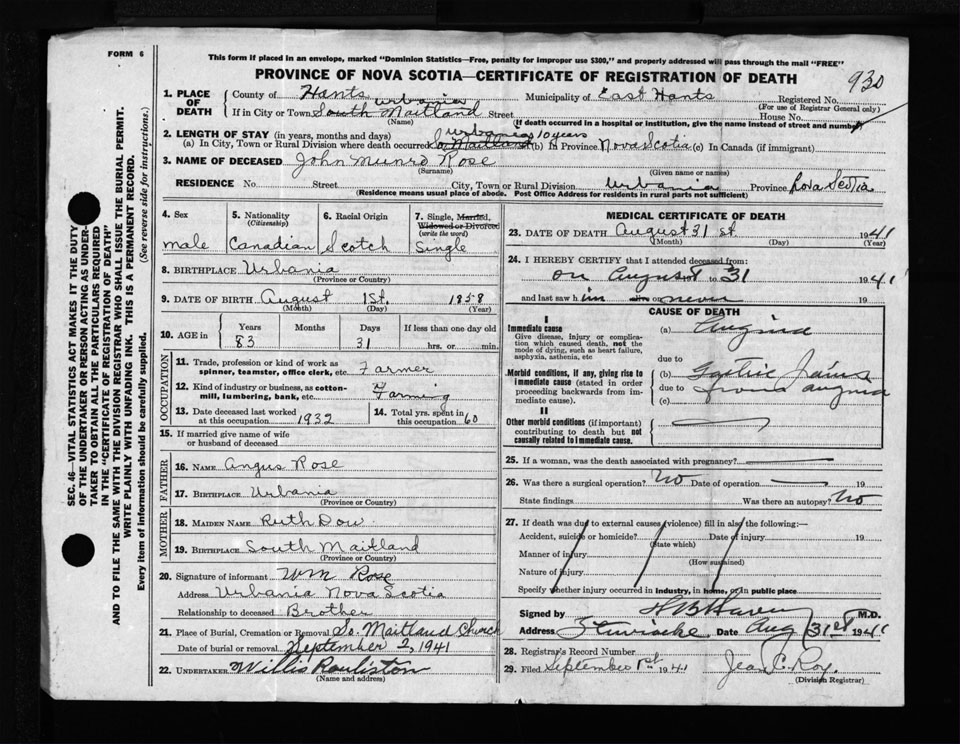 FORM 6
This form if placed in an envelope, marked "Dominion Statistics—Free, penalty for improper use $300," and properly addressed will pass through the mail "FREE"
PROVINCE OF NOVA SCOTIA—CERTIFICATE OF REGISTRATION OF DEATH
930
SEC. 46—VITAL STATISTICS ACT MAKES IT THE DUTY
OF THE UNDERTAKER OR PERSON ACTING AS UNDER-
TAKER TO OBTAIN ALL THE PARTICULARS REQUIRED
IN THE "CERTIFICATE OF REGISTRATION OF DEATH"
AND TO FILE THE SAME WITH THE DIVISION REGISTRAR WHO SHALL ISSUE THE BURIAL PERMIT.
WRITE PLAINLY WITH UNFADING INK. THIS IS A PERMANENT RECORD.
Every item of information should be carefully supplied. (See reverse side for instructions.)
1. PLACE OF DEATH
County of Hants Municipality of East Hants Registered No.
(For use of Registrar General only)
Urbania
If in City or Town South Maitland Street House No.
(Name) (If death occurred in a hospital or institution, give the name instead of street and number)
2. LENGTH OF STAY (in years, months and days) Urbania 10 years
(a) In City, Town or Rural Division where death occurred So. Maitland (b) In Province Nova Scotia (c) In Canada (if immigrant)
3. NAME OF DECEASED John Munro Rose
(Surname) (Given name or names)
RESIDENCE No. Street City, Town or Rural Division Urbania Province Nova Scotia
(Residence means usual place of abode. Post Office Address for residents in rural parts not sufficient)
4. Sex
male
5. Nationality
(Citizenship)
Canadian
6. Racial Origin
Scotch
7. Single, Married,
Widowed or Divorced
(write the word)
Single
8. BIRTHPLACE Urbania
(Province or Country)
9. DATE OF BIRTH August 1st. 1858
(Month) (Day) (Year)
10. AGE in
Years Months Days If less than one day old
83 31 hrs. or min.
OCCUPATION
11. Trade, profession or kind of work as
spinner, teamster, office clerk, etc. Farmer
12. Kind of industry or business, as cotton-
mill, lumbering, bank, etc. Farming
13. Date deceased last worked
at this occupation 1932
14. Total yrs. spent in
this occupation 60
15. If married give name of wife
or husband of deceased
FATHER
16. NAME Angus Rose
17. BIRTHPLACE Urbania
(Province or Country)
MOTHER
18. MAIDEN NAME Ruth Dow
19. BIRTHPLACE South Maitland
(Province or Country)
20. Signature of informant Wm Rose
Address Urbania Nova Scotia
Relationship to deceased Brother
21. Place of Burial, Cremation or Removal So. Maitland Church
Date of burial or removal September 2, 1941
22. UNDERTAKER Willis
(Name and address)
MEDICAL CERTIFICATE OF DEATH
23. DATE OF DEATH August 31st 1941
(Month) (Day) (Year)
24. I HEREBY CERTIFY that I attended deceased from:
on August to 31 1941
and last saw him or never 19
CAUSE OF DEATH
I
Immediate cause
Give disease, injury or complica-
tion which caused death, not the
mode of dying, such as heart failure,
asphyxia, asthenia, etc
(a) Angina
due to
Morbid conditions, if any, giving rise to
immediate cause (stated in order
proceeding backwards from im-
mediate cause).
(b)
due to from angina
(c)
II
Other morbid conditions (if important)
contributing to death but not
causally related to immediate cause.
25. If a woman, was the death associated with pregnancy?
26. Was there a surgical operation? No Date of operation 19
State findings Was there an autopsy? No
27. If death was due to external causes (violence) fill in also the following:—
Accident, suicide or homicide? Date of injury 19
(State which)
Manner of injury
(How sustained)
Nature of injury
Specify whether injury occurred in industry, in home, or in public place
Signed by M.D.
Address Date Aug 31st 1941
28. Registrar's Record Number
29. Filed September 1st 1941 Jean C. Roy.
(Division Registrar)